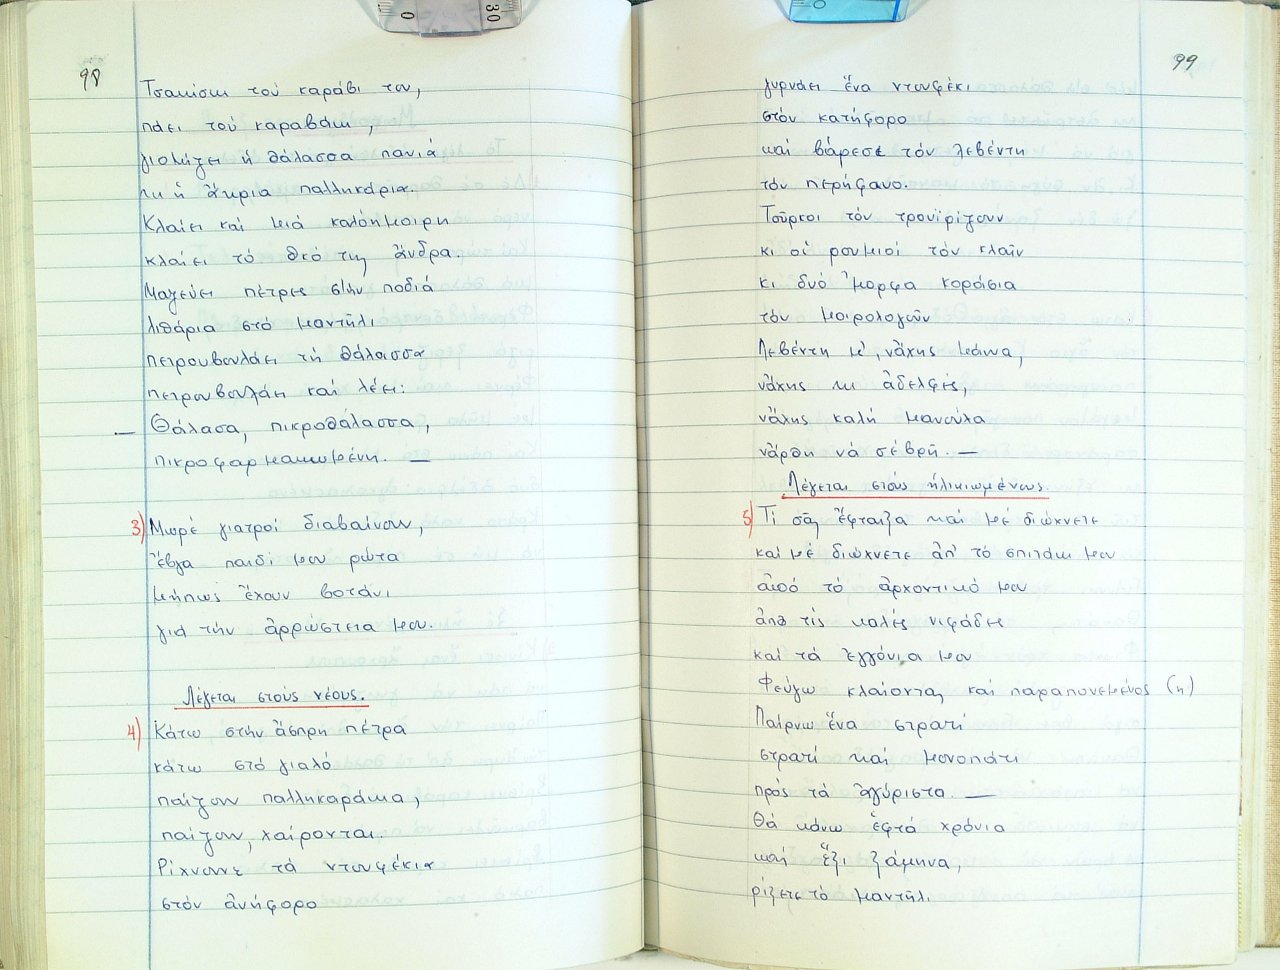 98
Τσακίσει τού καράβι του,
πάει τού καραβάκι,
γιομίζει ἡ θάλασσα πανιά
κι ἡ ἄκρια παλληκάρια.
Κλαίει καί μιά καλόημοιρη
κλαίει τό θκό της ἄνδρα.
Μαζεύει πέτρες στήν ποδιά
λιθάρια στό μαντήλι
πετρουβουλάει τή θάλασσα
πετρουβουλάει καί λέει:
— Θάλασα, πικροθάλασσα,
πικροφαρμακωμένη. —
3) Μωρέ γιατροί διαβαίνουν,
ἔβγα παιδί μου ρώτα
μήπως ἔχουν βοτάνι
γιά τήν ἀρρώστεια μου.
Λέγεται στούς νέους.
4) Κάτω στήν ἄσπρη πέτρα
κάτω στό γιαλό
παίζουν παλληκαράκια,
παίζουν, χαίρονται.
Ρίχνουνε τά ντουφέκια
στόν ἀνήφορο
99
γυρνάει ἕνα ντουφέκι
στόν κατήφορο
καί βάρεσε τόν λεβέντη
τόν περήφανο.
Τοῦρκοι τόν τρουϊρίζουν
κι οἱ ρουμιοί τόν κλαῖν
κι δυό ὄμορφα κοράσια
τόν μοιρολογοῦν
Λεβέντη μ', νἄχης μάνα,
νἄχης κι ἀδελφές,
νἄχης καλή μανούλα
νἄρθη νά σέ βρῆ. —
Λέγεται στούς ἡλικιωμένους.
5) Τί σᾶς ἔφταιξα καί μέ διώχνετε
καί μέ διώχνετε ἀπ' τό σπιτάκι μου
ἀπό τό ἀρχοντικό μου
ἀπό τίς καλές νυφάδες
καί τά ἐγγόνια μου
Φεύγω κλαίοντας καί παραπονεμένος (η)
Παίρνω ἕνα στρατί
στρατί καί μονοπάτι
πρός τά ἀγύριστα. —
Θά κάνω ἑφτά χρόνια
καί ἕξι ξάμηνα,
ρίξετε τό μαντήλι